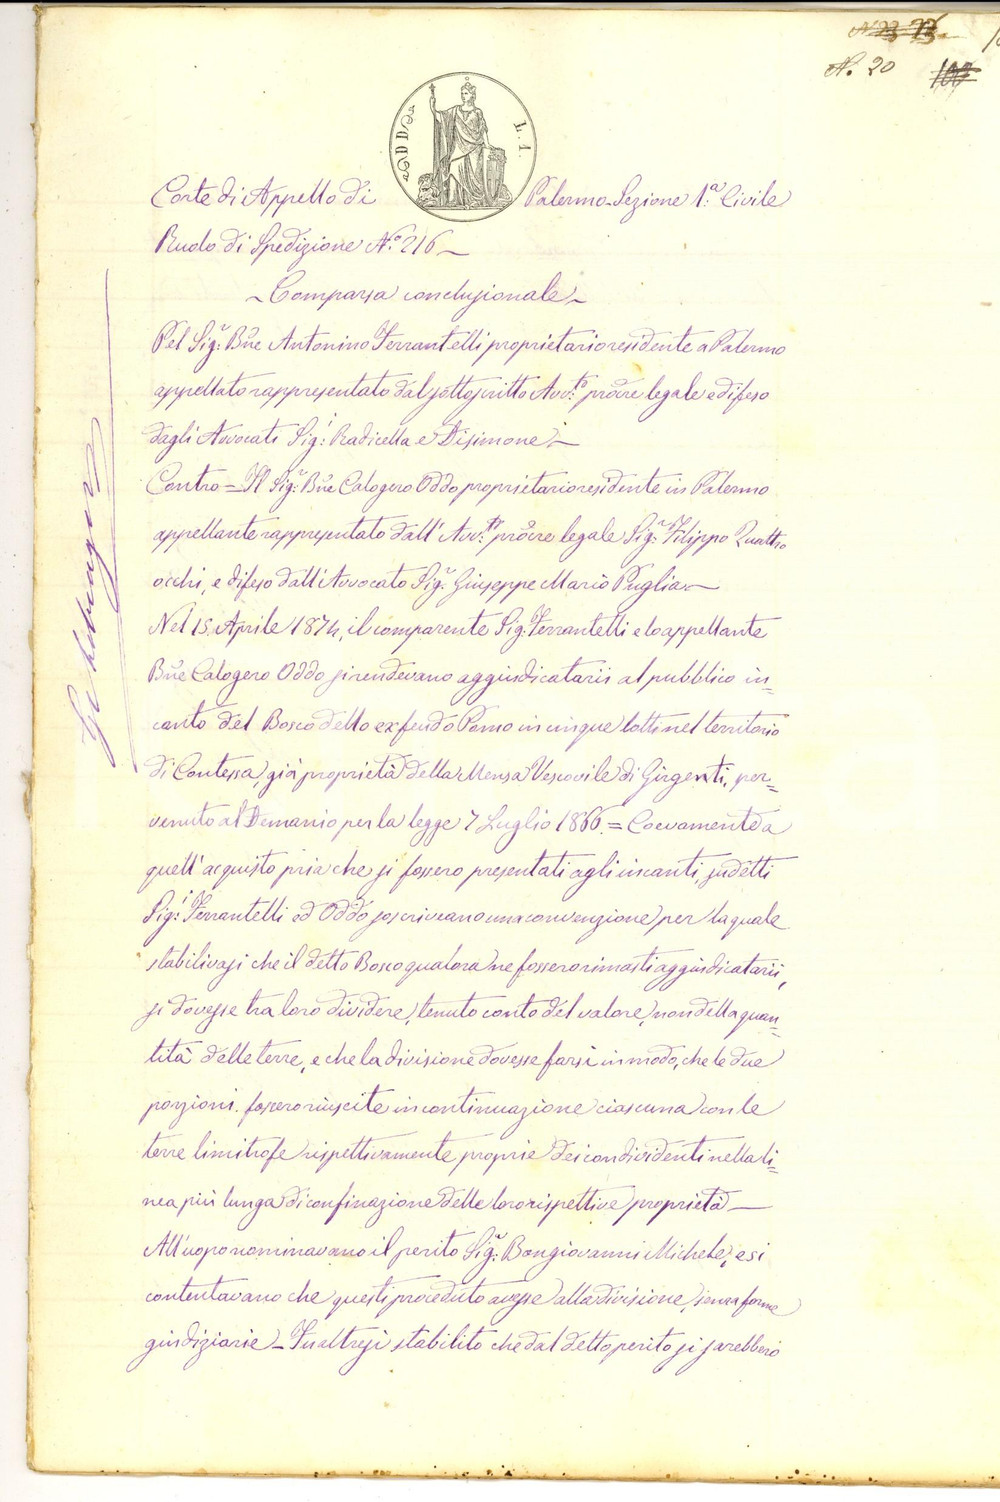 N. 20
L. 1.
Corte di Appello di Palermo - Sezione 1.ª Civile
Ruolo di Spedizione N.º 216 —
~ Comparsa conclusionale ~
Pel Sig.r B.ne Antonino Ferrantelli proprietario residente a Palermo
appellato rappresentato dal sottoscritto Avv.to proc.re legale e difeso
dagli Avvocati Sig.i Radicella e Disimone —
Contro = Il Sig.r B.ne Calogero Oddo proprietario residente in Palermo
appellante rappresentato dall' Avv.to proc.re legale Sig.r Filippo Quattro
occhi, e difeso dall'Avvocato Sig.r Giuseppe Mario Puglia —
Nel 15 Aprile 1874, il comparente Sig. Ferrantelli e lo appellante
B.ne Calogero Oddo si rendevano aggiudicatarii al pubblico in=
canto del Bosco detto exfeudo Pomo in cinque lotti nel territorio
di Contessa, già proprietà della Mensa Vescovile di Girgenti, per=
venuto al Demanio per la legge 7 Luglio 1866. = Coevamente a
quell'acquisto pria che si fossero presentati agli incanti, sudetti
Sig.i Ferrantelli ed Oddo soscriveano una convenzione per la quale
stabilivasi che il detto Bosco qualora ne fossero rimasti aggiudicatarii,
si dovesse tra loro dividere, tenuto conto del valore, non della quan=
tità delle terre, e che la divisione dovesse farsi in modo, che le due
porzioni fossero riuscite in continuazione ciascuna con le
terre limitrofe rispettivamente proprie dei condividenti nella li=
nea più lunga di confinazione delle loro rispettive proprietà —
All'uopo nominavano il perito Sig.r Bongiovanni Michele, e si
contentavano che questi proceduto avesse alla divisione, senza forme
giudiziarie — Fu altresì stabilito che dal detto perito si sarebbero